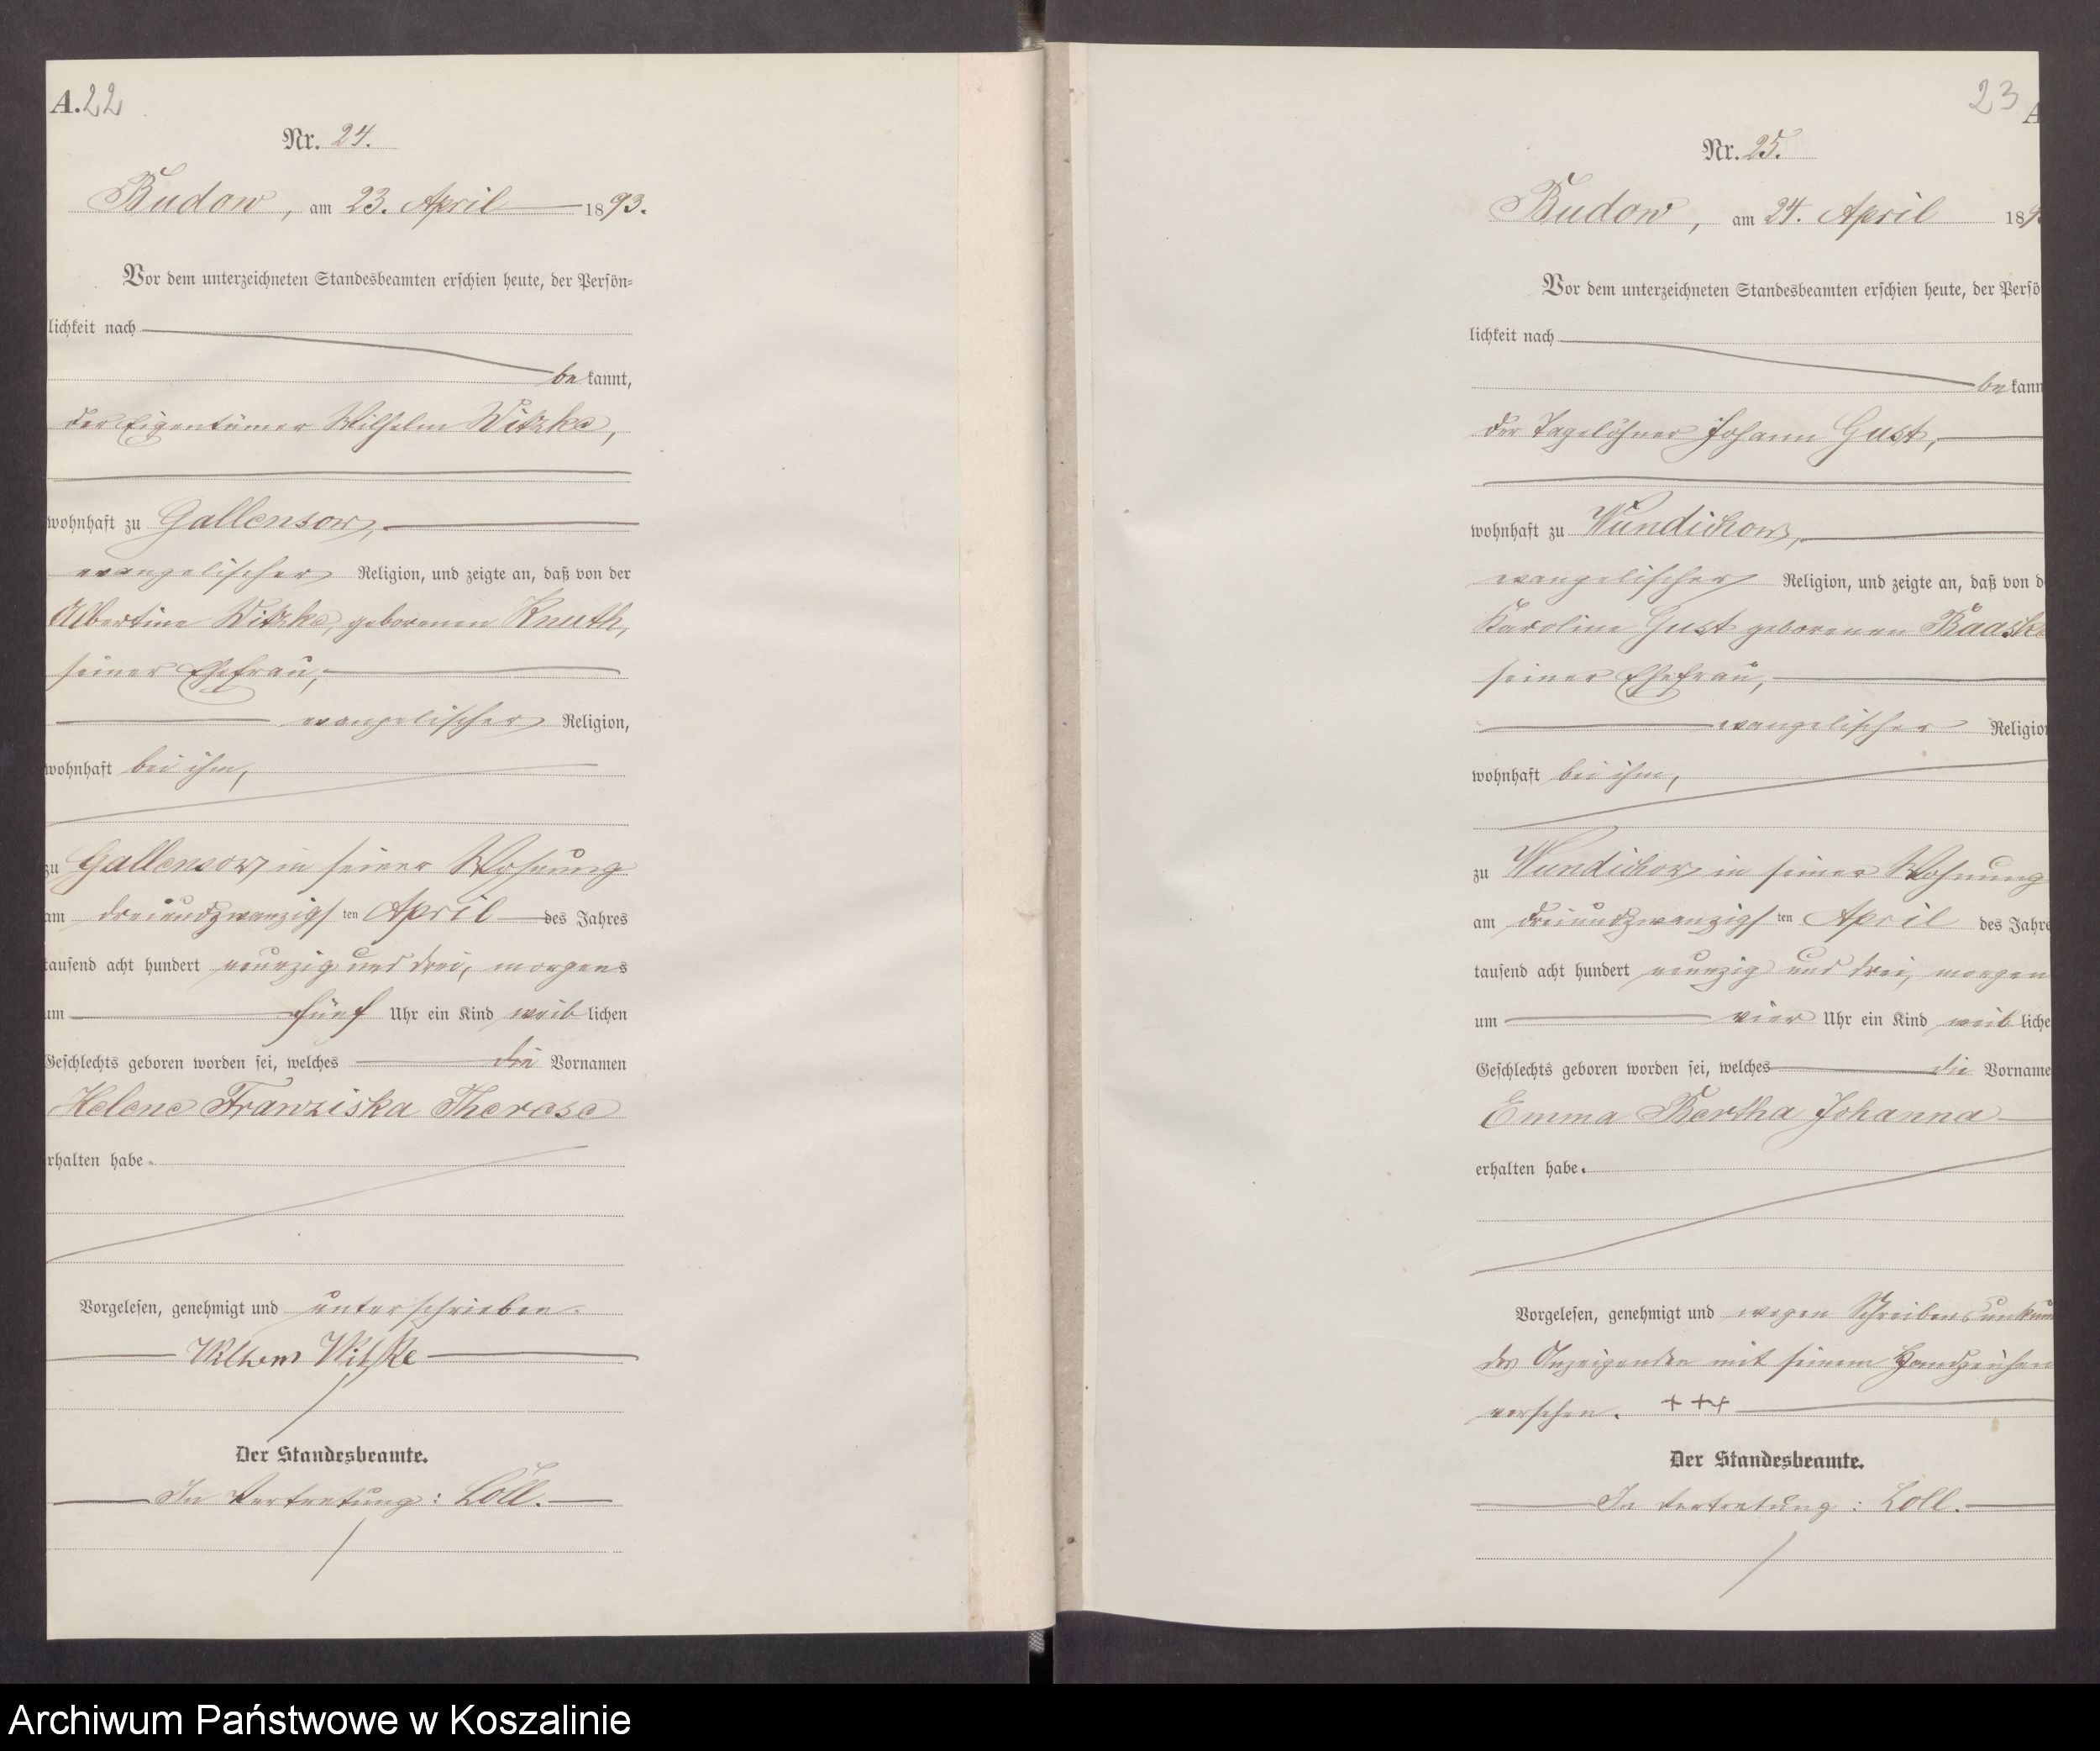 A. 22
Nr. 24.
Budow, am 23. April 1893.
Vor dem unterzeichneten Standesbeamten erschien heute, der Persön-
lichkeit nach
bekannt,
der Eigentümer Wilhelm Witzke,
wohnhaft zu Gallensow,
evangelischer Religion, und zeigte an, daß von der
Albertine Witzke, geborenen Knuth,
seiner Ehefrau,
evangelischer Religion,
wohnhaft bei ihm,
zu Gallensow in seiner Wohnung
am dreiundzwanzigsten April des Jahres
tausend acht hundert neunzig und drei, morgens
um fünf Uhr ein Kind weiblichen
Geschlechts geboren worden sei, welches die Vornamen
Helene Franziska Therese
erhalten habe.
Vorgelesen, genehmigt und unterschrieben.
Wilhem Witzke
Der Standesbeamte.
In Vertretung: Loll.
23 A
Nr. 25.
Budow, am 24. April 189
Vor dem unterzeichneten Standesbeamten erschien heute, der Persö
lichkeit nach
bekann
der Tagelöhner Johann Gust,
wohnhaft zu Wundichow,
evangelischer Religion, und zeigte an, daß von d
Karoline Gust geborenen Baaske
seiner Ehefrau,
evangelischer Religion
wohnhaft bei ihm,
zu Wundichow in seiner Wohnung
am dreiundzwanzigsten April des Jahre
tausend acht hundert neunzig und drei, morgen
um vier Uhr ein Kind weibliche
Geschlechts geboren worden sei, welches die Vorname
Emma Bertha Johanna
erhalten habe.
Vorgelesen, genehmigt und wegen Schreibensunkun
des Anzeigenden mit seinem Handzeichen
versehen. +++
Der Standesbeamte.
In Vertretung: Loll.
Archiwum Państwowe w Koszalinie